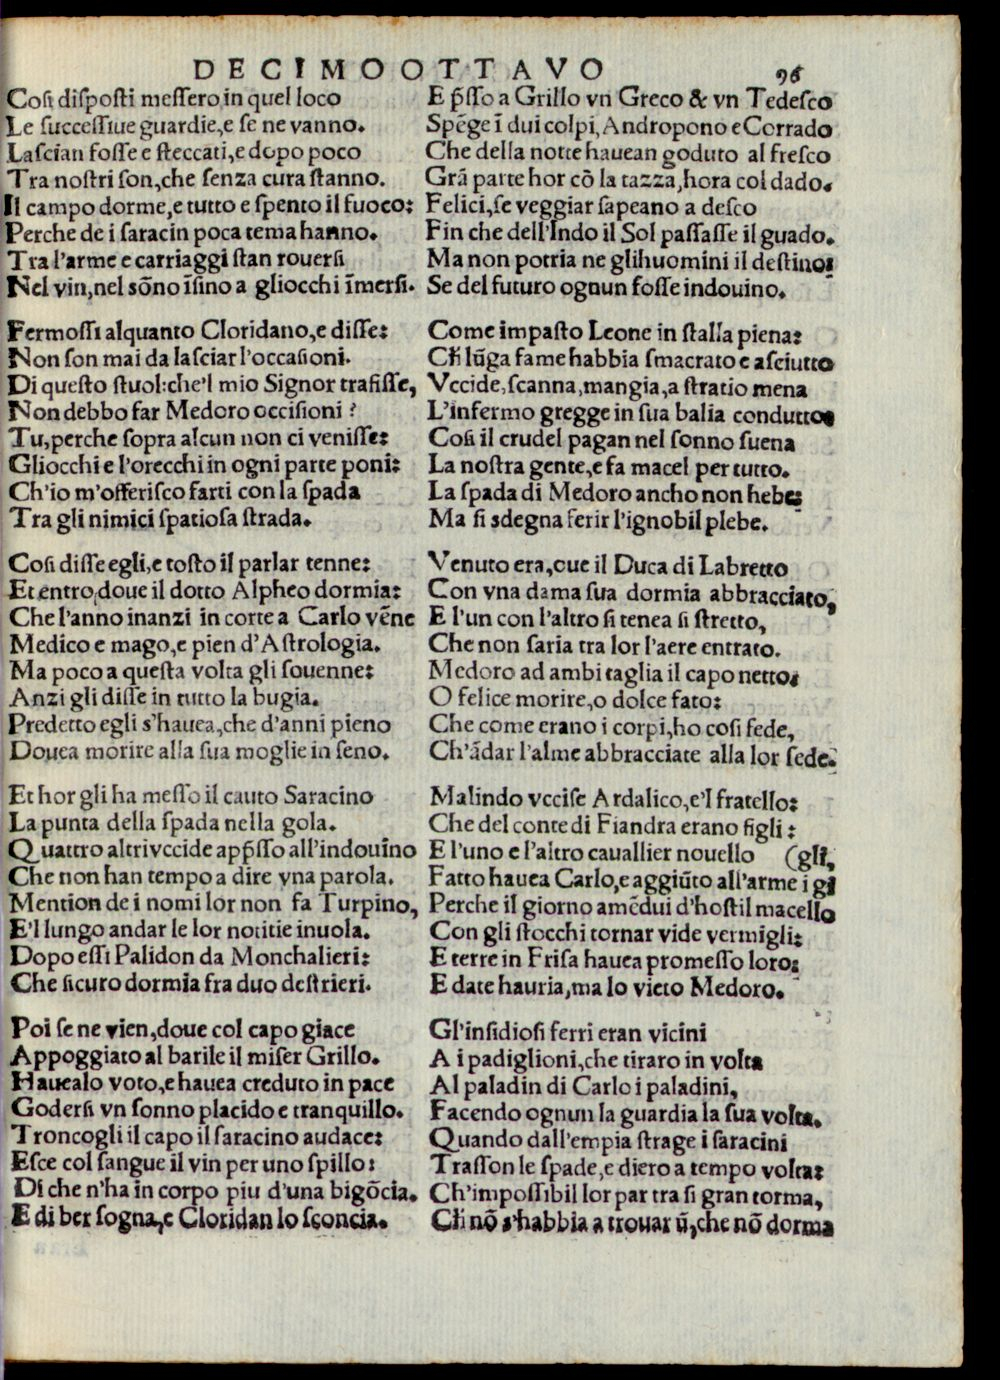 DECIMOOTTAVO 96
Coſi diſpoſti meſſero in quel loco
Le ſucceſſiue guardie, e ſe ne vanno.
Laſcian foſſe e ſteccati, e dopo poco
Tra noſtri ſon, che ſenza cura ſtanno.
Il campo dorme, e tutto e ſpento il fuoco:
Perche de i ſaracin poca tema hanno.
Tra l'arme e carriaggi ſtan rouerſi
Nel vin, nel sõno ĩſino a gliocchi ĩmerſi.
Fermoſſi alquanto Cloridano, e diſſe:
Non ſon mai da laſciar l'occaſioni.
Di queſto ſtuol: che'l mio Signor trafiſſe,
Non debbo far Medoro occiſioni?
Tu, perche ſopra alcun non ci veniſſe:
Gliocchi e l'orecchi in ogni parte poni:
Ch'io m'offeriſco farti con la ſpada
Tra gli nimici ſpatioſa ſtrada.
Coſi diſſe egli, e toſto il parlar tenne:
Et entro, doue il dotto Alpheo dormia:
Che l'anno inanzi in corte a Carlo vẽne
Medico e mago, e pien d'Aſtrologia.
Ma poco a queſta volta gli ſouenne:
Anzi gli diſſe in tutto la bugia.
Predetto egli s'hauea, che d'anni pieno
Douea morire alla ſua moglie in ſeno.
Et hor gli ha meſſo il cauto Saracino
La punta della ſpada nella gola.
Quattro altri vccide app̃ſſo all'indouino
Che non han tempo a dire vna parola.
Mention de i nomi lor non fa Turpino,
E'l lungo andar le lor notitie inuola.
Dopo eſſi Palidon da Monchalieri:
Che ſicuro dormia fra duo deſtrieri.
Poi ſe ne vien, doue col capo giace
Appoggiato al barile il miſer Grillo.
Hauealo voto, e hauea creduto in pace
Goderſi vn ſonno placido e tranquillo.
Troncogli il capo il ſaracino audace:
Eſce col ſangue il vin per uno ſpillo:
Di che n'ha in corpo piu d'una bigõcia.
E di ber ſogna, e Cloridan lo ſconcia.
E p̃ſſo a Grillo vn Greco & vn Tedeſco
Spẽge ĩ dui colpi, Andropono e Corrado
Che della notte hauean goduto al freſco
Grã parte hor cõ la tazza, hora col dado.
Felici, ſe veggiar ſapeano a deſco
Fin che dell'Indo il Sol paſſaſſe il guado.
Ma non potria ne glihuomini il deſtino:
Se del futuro ognun foſſe indouino.
Come impaſto Leone in ſtalla piena:
Ch̃ lũga fame habbia ſmacrato e aſciutto
Vccide, ſcanna, mangia, a ſtratio mena
L'infermo gregge in ſua balia condutto:
Coſi il crudel pagan nel ſonno ſuena
La noſtra gente, e fa macel per tutto.
La ſpada di Medoro ancho non hebe:
Ma ſi sdegna ferir l'ignobil plebe.
Venuto era, oue il Duca di Labretto
Con vna dama ſua dormia abbracciato,
E l'un con l'altro ſi tenea ſi ſtretto,
Che non ſaria tra lor l'aere entrato.
Medoro ad ambi taglia il capo netto,
O felice morire, o dolce fato:
Che come erano i corpi, ho coſi fede,
Ch'ãdar l'alme abbracciate alla lor ſede.
Malindo vcciſe Ardalico, e'l fratello:
Che del conte di Fiandra erano figli:
E l'uno e l'altro cauallier nouello (gli,
Fatto hauea Carlo, e aggiũto all'arme i gi
Perche il giorno amẽdui d'hoſtil macello
Con gli ſtocchi tornar vide vermigli:
E terre in Friſa hauea promeſſo loro:
E date hauria, ma lo vieto Medoro.
Gl'inſidioſi ferri eran vicini
A i padiglioni, che tiraro in volta
Al paladin di Carlo i paladini,
Facendo ognun la guardia la ſua volta.
Quando dall'empia ſtrage i ſaracini
Traſſon le ſpade, e diero a tempo volta:
Ch'impoſſibil lor par tra ſi gran torma,
Ch̃ nõ s'habbia a trouar ũ, che nõ dorma